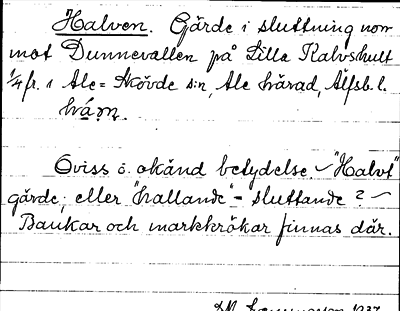 Halven. Gärde i sluttning norr
mot Dunnevallen på Lilla Kalvshult
1/4 fr. i Ale-Skövde s:n, Ale härad, Älfsb. l.
Oviss o. okänd betydelse. "Halvt"
gärde; eller "hallande" - sluttande?
Backar och markkrökar finnas där.
1937